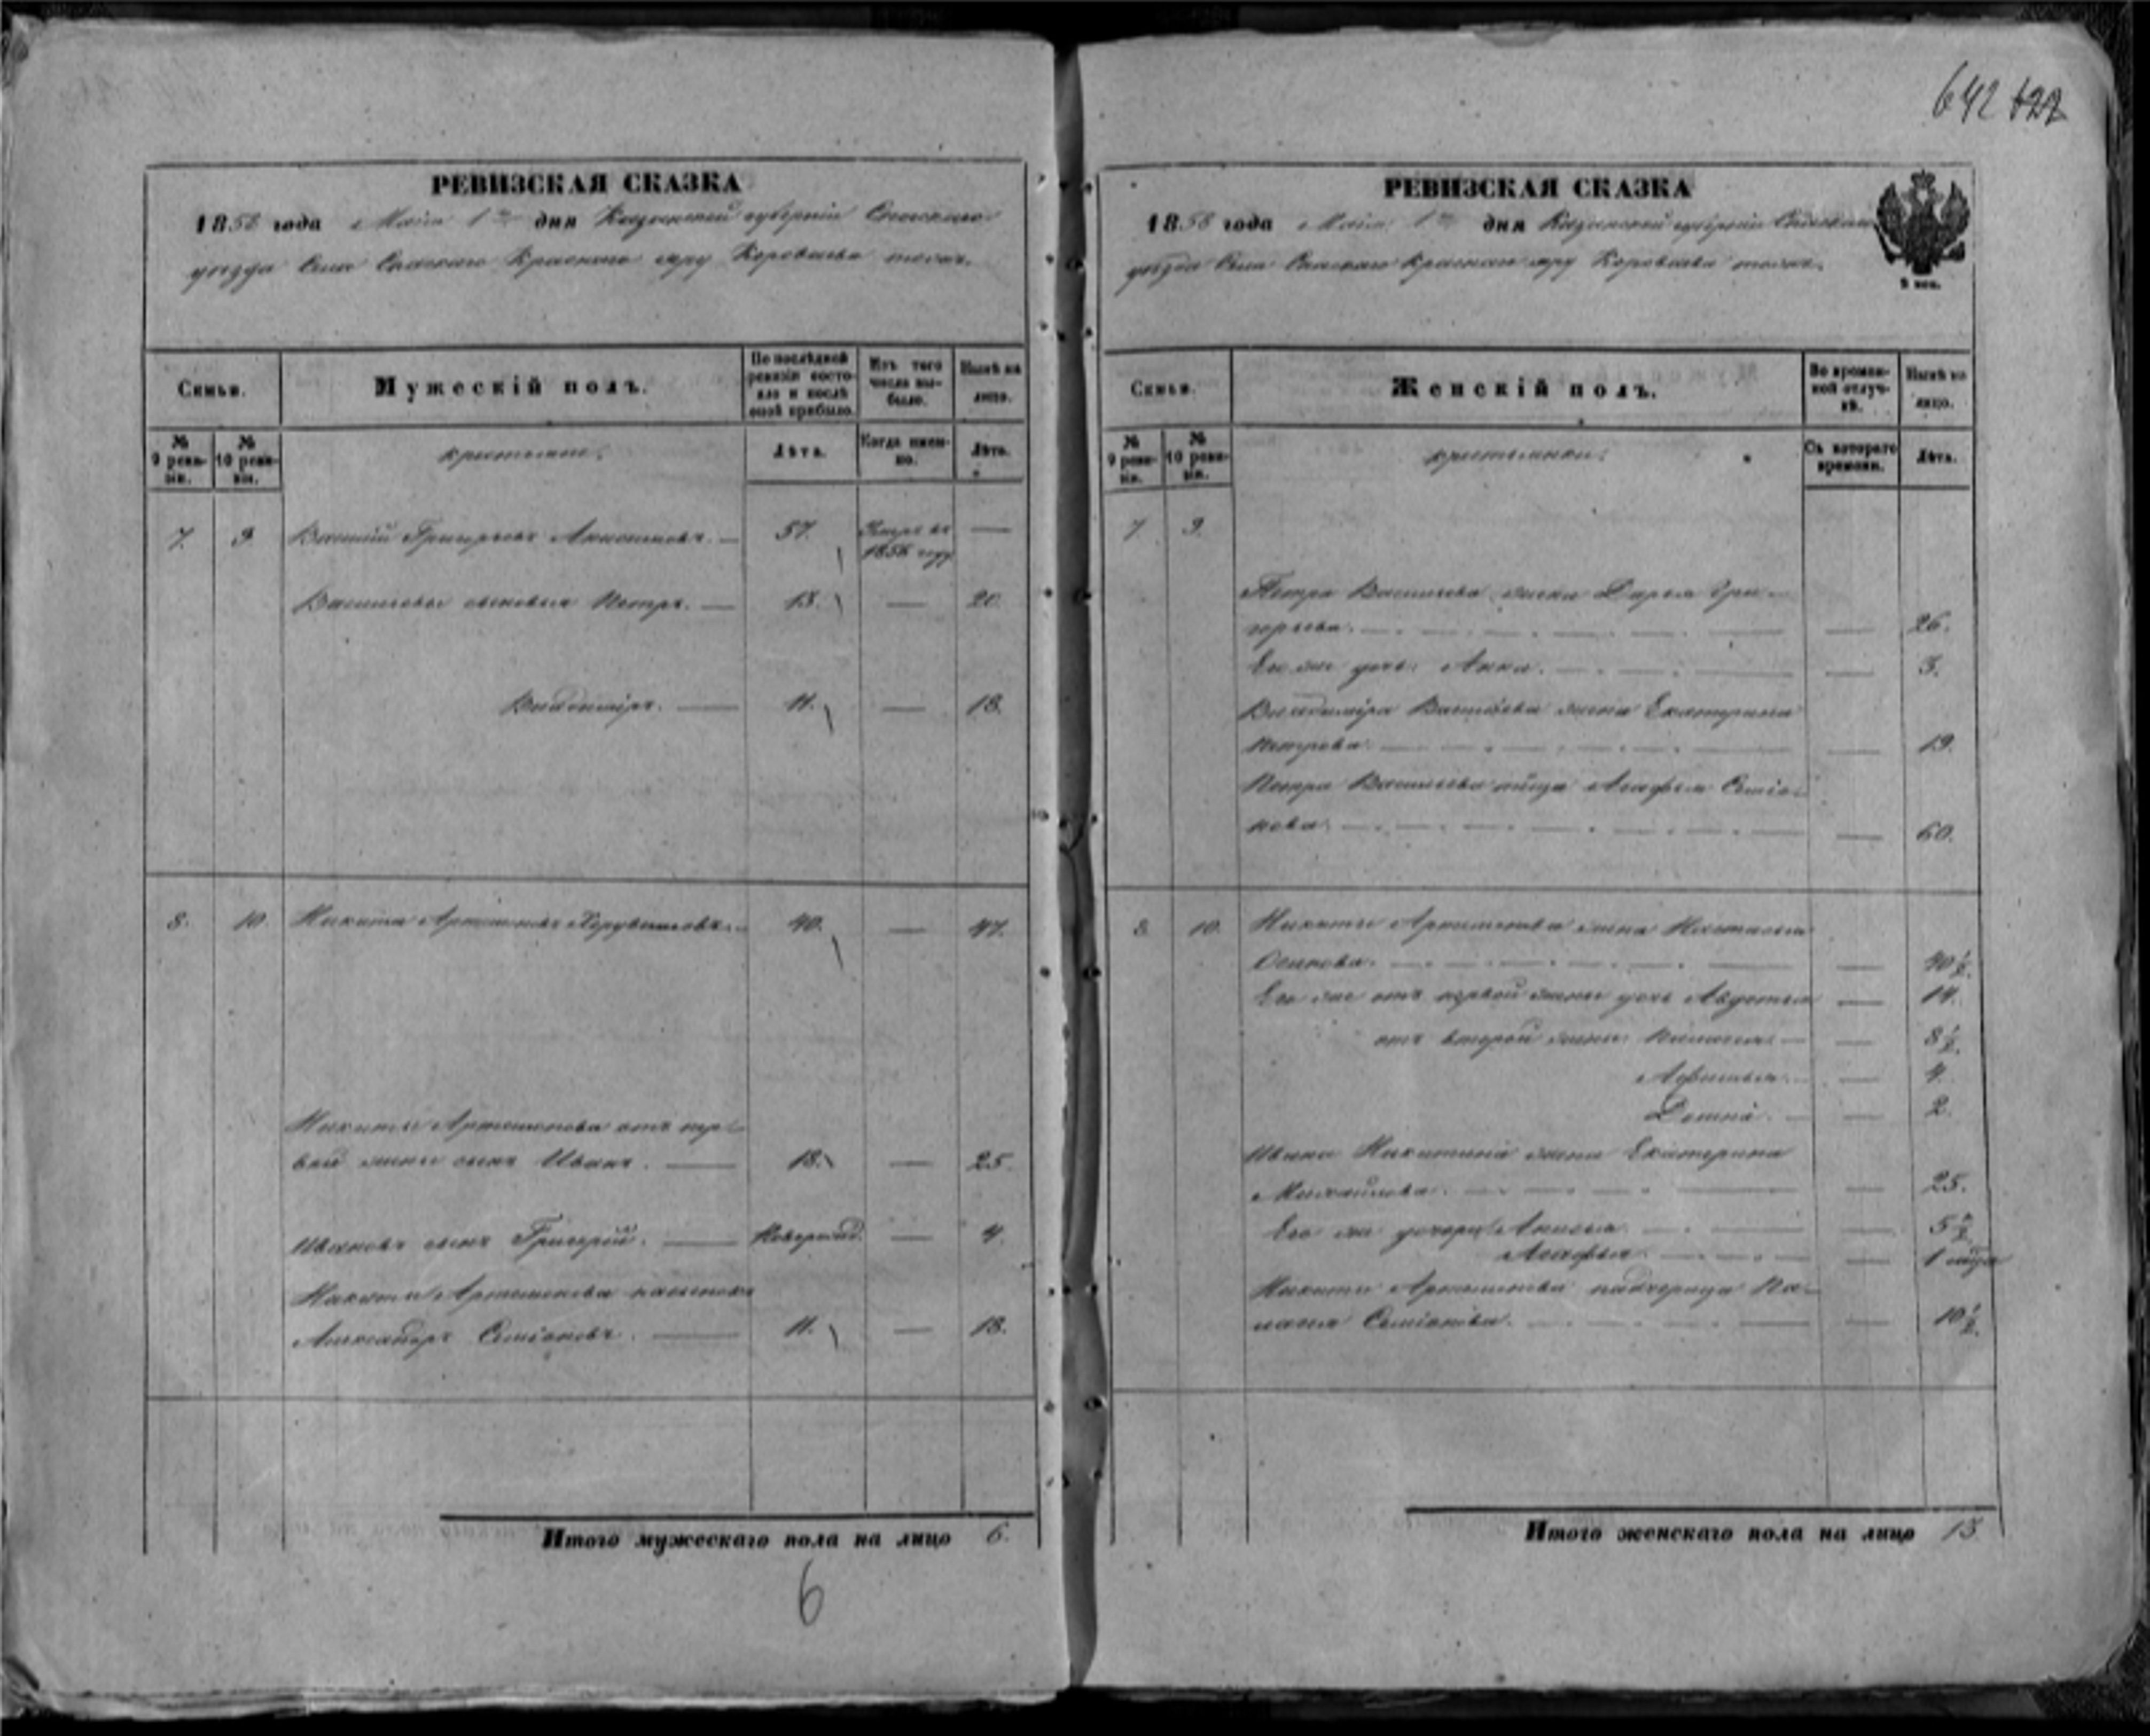 642 122
РЕВИЗСКАЯ СКАЗКА
1858 года Маія 1го дня Казанской губерніи Спасскаго
уѣзда Села Спаскаго Краснаго яру Короваева тожъ.
Семьи.
Мужескій полъ.
По послѣдней ревизіи состояло и послѣ оной прибыло.
Изъ того числа выбыло.
Нынѣ на лицо.
№ 9 ревизіи.
№ 10 ревизіи.
крестьяне.
Лѣта.
Когда именно.
Лѣта.
7. 9. Василій Григорьевъ — 57. 1856 году —
Васильевы сыновья Петръ. — 13. — 20.
Владиміръ. — 11. — 18.
8. 10. Никита Артамоновъ 40. — 47.
Никиты Артамонова отъ пер-
вой жены сынъ Иванъ. — 18. — 25.
Ивановъ сынъ Григорій. — Новорожд. — 4.
Никиты Артамонова пасынокъ
Александръ Семіоновъ. — 11. — 18.
Итого мужескаго пола на лицо 6.
6
РЕВИЗСКАЯ СКАЗКА
1858 года Маія 1го дня Казанской губерніи Спаскаго
уѣзда Села Спаскаго Краснаго яру Короваева тожъ.
9 коп.
Семьи.
Женскій полъ.
Во временной отлучкѣ.
Нынѣ на лицо.
№ 9 ревизіи.
№ 10 ревизіи.
крестьянки.
Съ котораго времени.
Лѣта.
7 9.
Петра Васильева жена Дарья Гри-
горьева. — — 26.
Его же дочь Анна. — — 3.
Владиміра Васильева жена Екатерина
Петрова. — — 19.
Петра Васильева Агафья Семіо-
нова. — — 60.
8. 10. Никиты Артамонова жена Настасья
Осипова. — — 40½.
Его же отъ первой жены дочь Авдотья — 14.
отъ второй жены — — 8½.
— — 4.
Домна. — — 2.
Ивана Никитина жена Екатерина
Михайлова. — — 25.
Его же дочери Анисья. — — 5½.
Агафья. — — 1 мѣся
Никиты Артамонова падчерица Па-
лагея Семіонова. — — 10½.
Итого женскаго пола на лицо 13